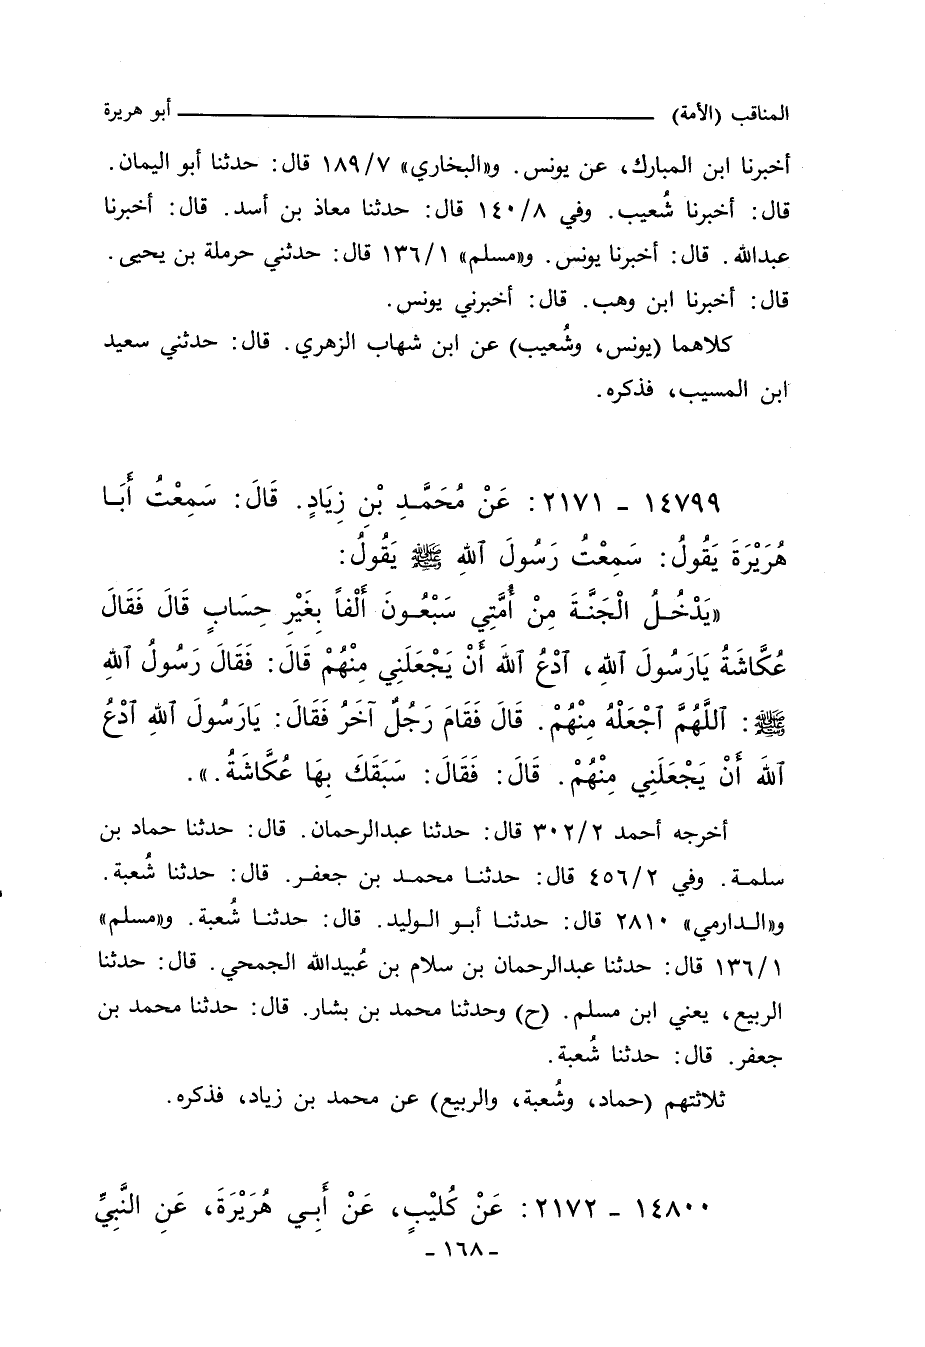 المناقب (الأمة) ــــــــــــــــــــــــــــــ أبو هريرة
أخبرنا ابن المبارك، عن يونس. و«البخاري» ١٨٩/٧ قال: حدثنا أبو اليمان.
قال: أخبرنا شُعيب. وفي ١٤٠/٨ قال: حدثنا معاذ بن أسد. قال: أخبرنا
عبدالله. قال: أخبرنا يونس. و«مسلم» ١٣٦/١ قال: حدثني حرملة بن يحيى.
قال: أخبرنا ابن وهب. قال: أخبرني يونس.
كلاهما (يونس، وشُعيب) عن ابن شهاب الزهري. قال: حدثني سعيد
ابن المسيب، فذكره.
١٤٧٩٩ - ٢١٧١: عَنْ مُحَمَّدِ بْنِ زِيَادٍ. قَالَ: سَمِعْتُ أَبَا
هُرَيْرَةَ يَقُولُ: سَمِعْتُ رَسُولَ ٱللهِ ﷺ يَقُولُ:
«يَدْخُلُ الْجَنَّةَ مِنْ أُمَّتِي سَبْعُونَ أَلْفاً بِغَيْرِ حِسَابٍ قَالَ فَقَالَ
عُكَّاشَةُ يَارَسُولَ ٱللهِ، ٱدْعُ ٱللهَ أَنْ يَجْعَلَنِي مِنْهُمْ قَالَ: فَقَالَ رَسُولُ ٱللهِ
ﷺ: ٱللَّهُمَّ ٱجْعَلْهُ مِنْهُمْ. قَالَ فَقَامَ رَجُلٌ آخَرُ فَقَالَ: يَارَسُولَ ٱللهِ ٱدْعُ
ٱللهَ أَنْ يَجْعَلَنِي مِنْهُمْ. قَالَ: فَقَالَ: سَبَقَكَ بِهَا عُكَّاشَةُ.».
أخرجه أحمد ٣٠٢/٢ قال: حدثنا عبدالرحمان. قال: حدثنا حماد بن
سلمة. وفي ٤٥٦/٢ قال: حدثنا محمد بن جعفر. قال: حدثنا شُعبة.
و«الدارمي» ٢٨١٠ قال: حدثنا أبو الوليد. قال: حدثنا شُعبة. و«مسلم»
١٣٦/١ قال: حدثنا عبدالرحمان بن سلام بن عُبيدالله الجمحي. قال: حدثنا
الربيع، يعني ابن مسلم. (ح) وحدثنا محمد بن بشار. قال: حدثنا محمد بن
جعفر. قال: حدثنا شُعبة.
ثلاثتهم (حماد، وشُعبة، والربيع) عن محمد بن زياد، فذكره.
١٤٨٠٠ - ٢١٧٢: عَنْ كُلَيْبٍ، عَنْ أَبِي هُرَيْرَةَ، عَنِ النَّبِيِّ
- ١٦٨ -